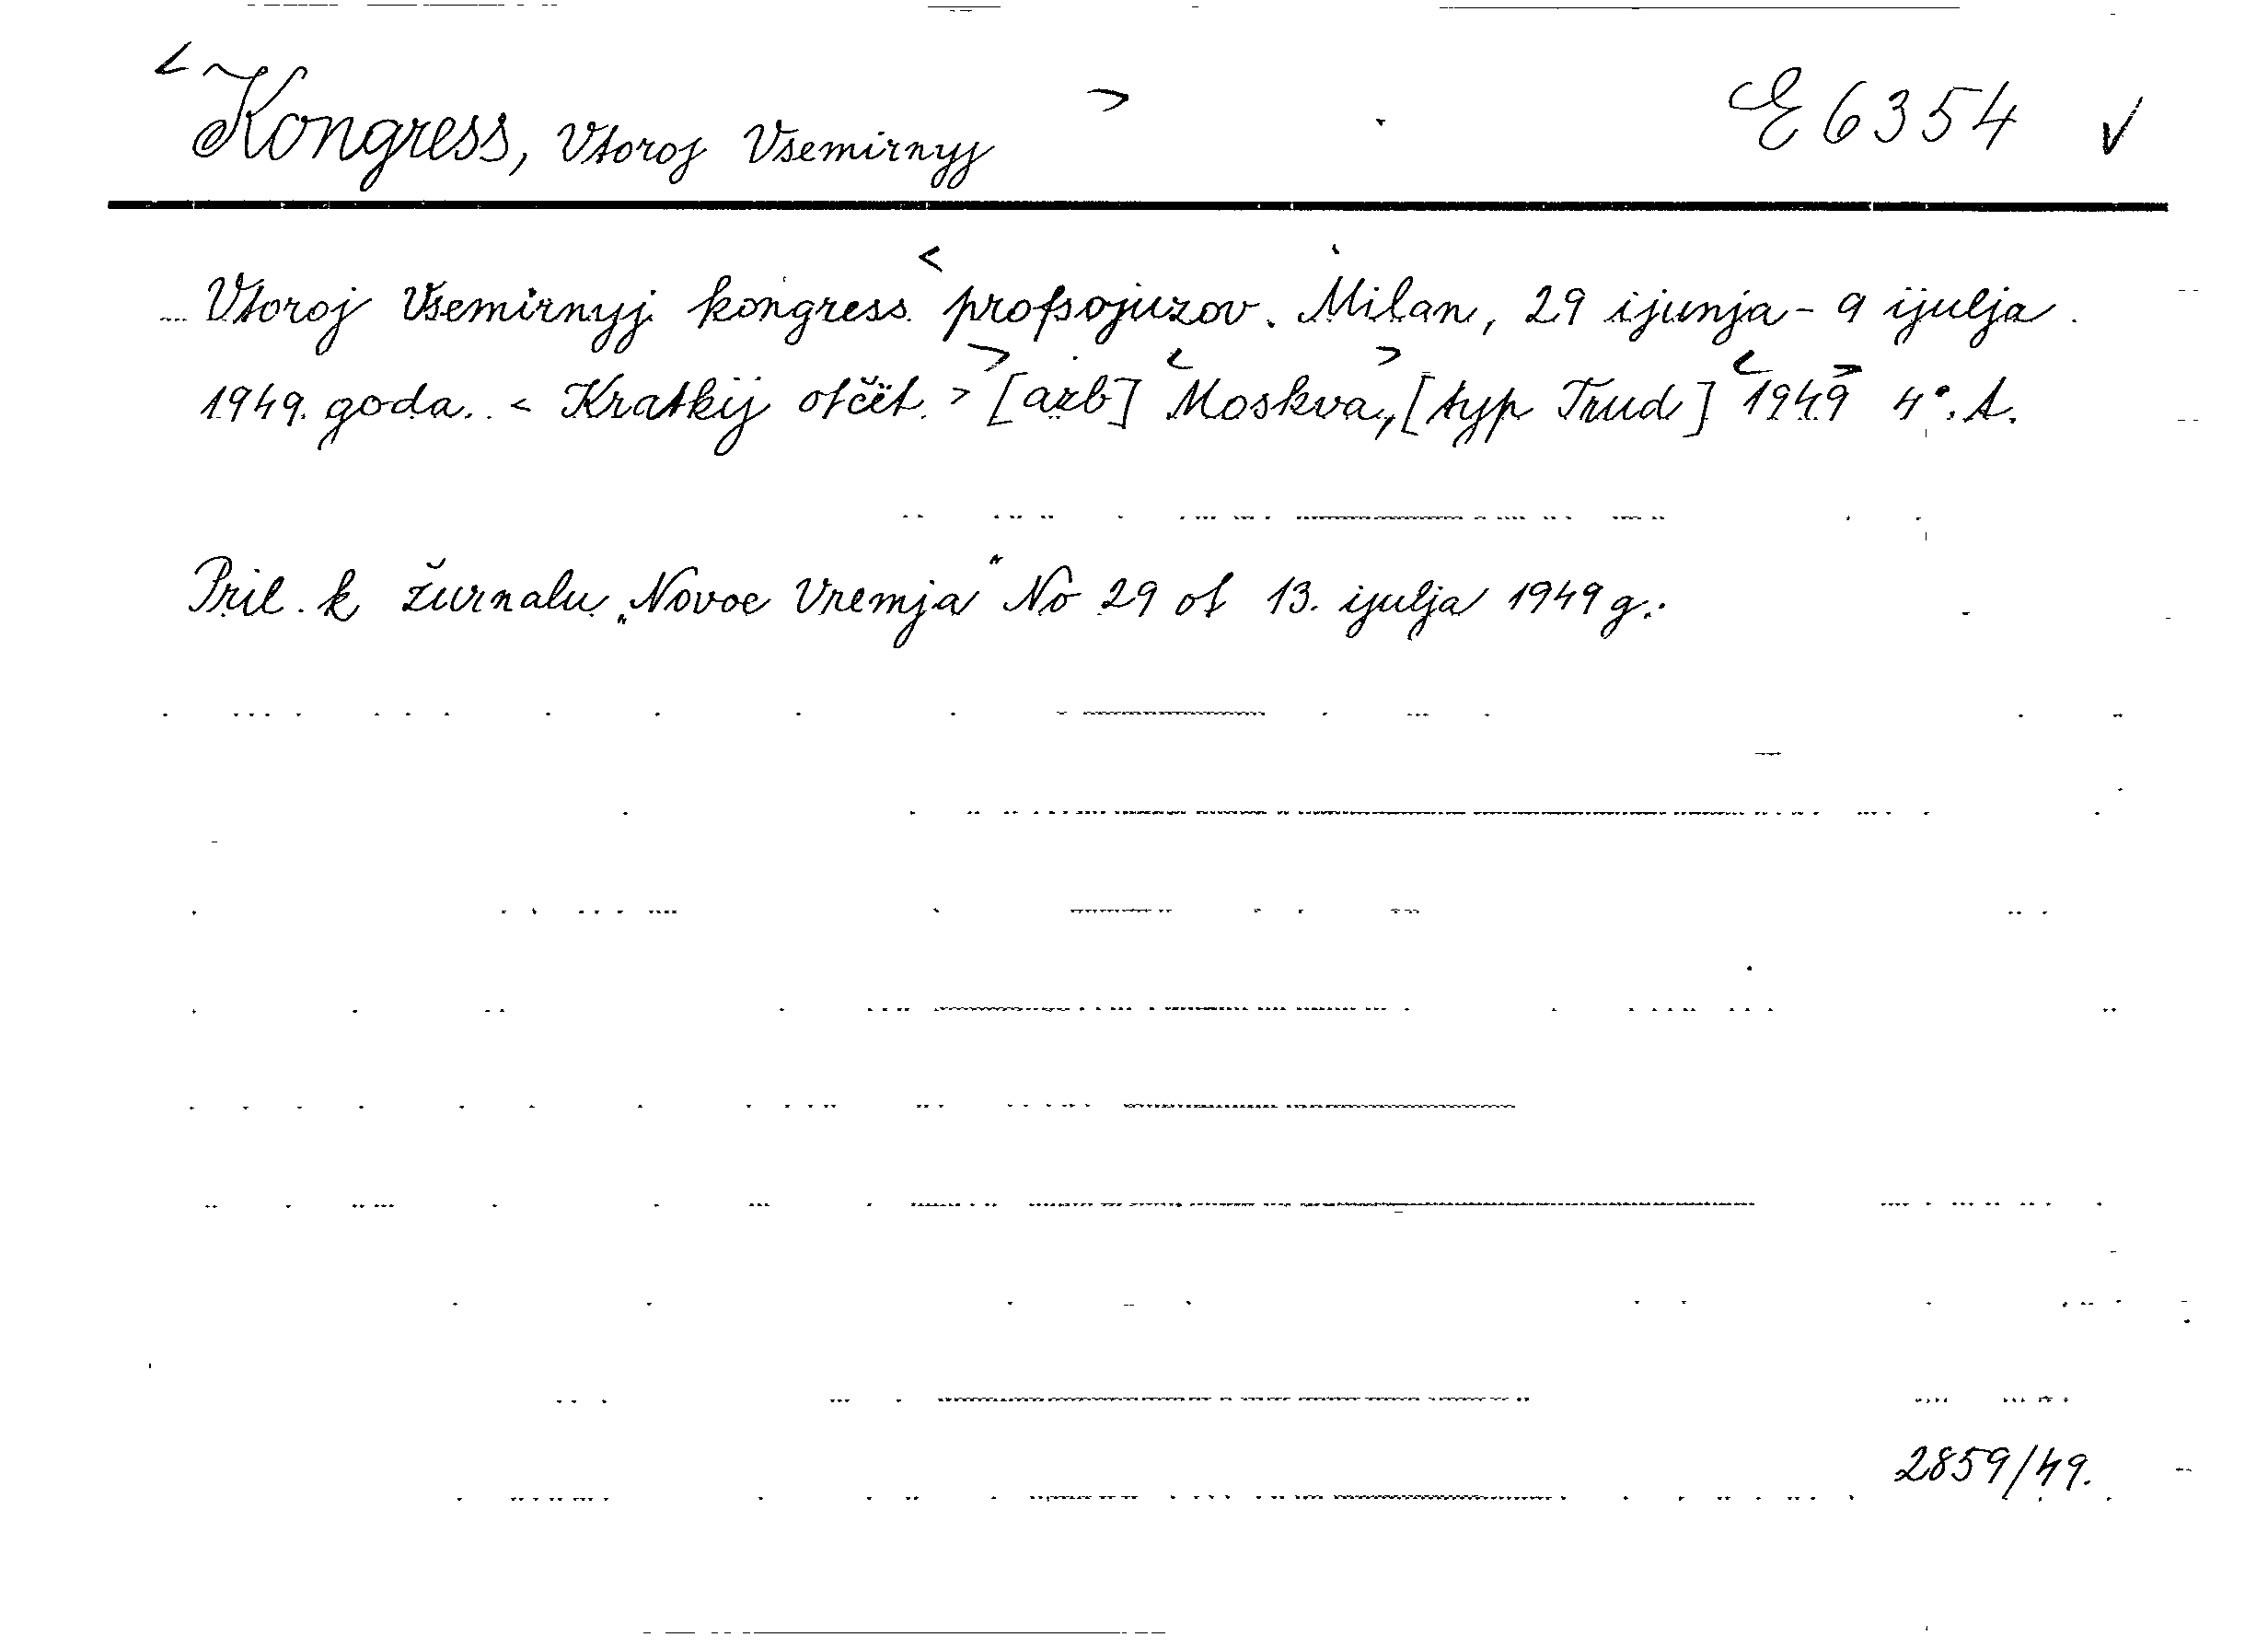 < Kongress, Vtoroj Vsemirnyj > E 6354 ✓
Vtoroj Vsemirnyj kongress < profsojuzov. Milan, 29 ijunja - 9 ijulja
1949. goda. < Kratkij otčët. > > [azb] < Moskva >, [typ Trud] < 1949 > 4°. A.
Pril. k žurnalu „Novoe Vremja" No 29 ot 13. ijulja 1949 g.
2859/49.